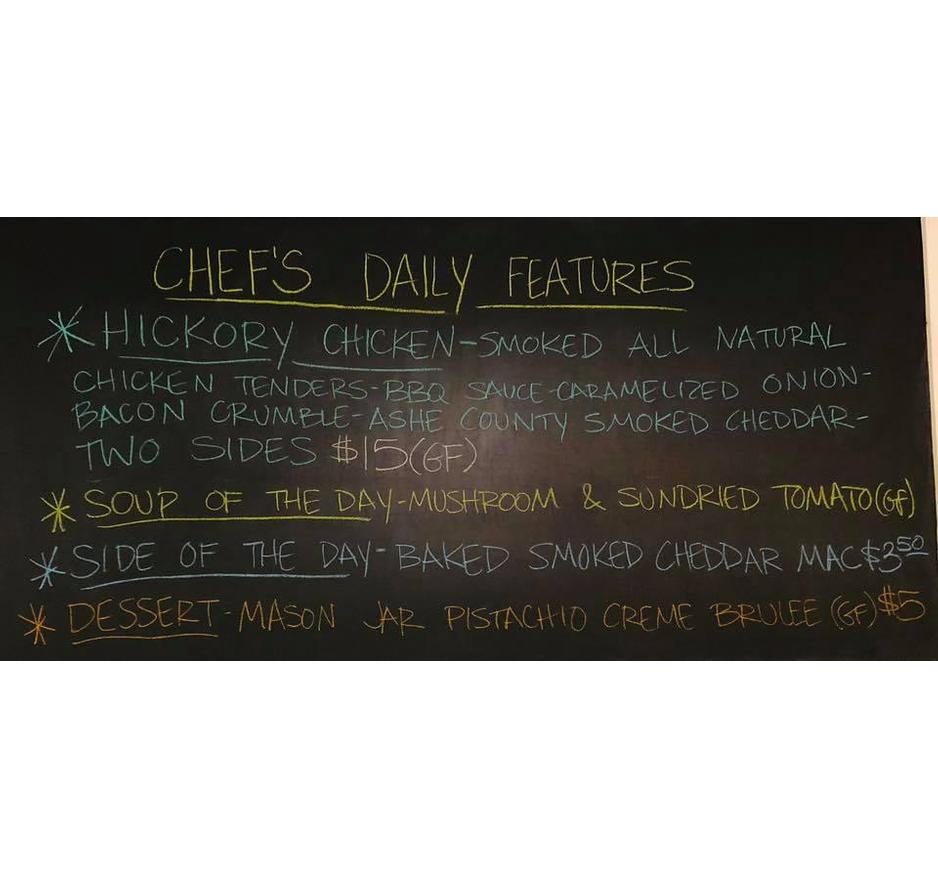 CHEF'S DAILY FEATURES
* HICKORY CHICKEN-SMOKED ALL NATURAL
CHICKEN TENDERS-BBQ SAUCE-CARAMELIZED ONION-
BACON CRUMBLE-ASHE COUNTY SMOKED CHEDDAR-
TWO SIDES $15(GF)
* SOUP OF THE DAY-MUSHROOM & SUNDRIED TOMATO(GF)
* SIDE OF THE DAY-BAKED SMOKED CHEDDAR MAC $3.50
* DESSERT-MASON JAR PISTACHIO CREME BRULEE (GF) $5